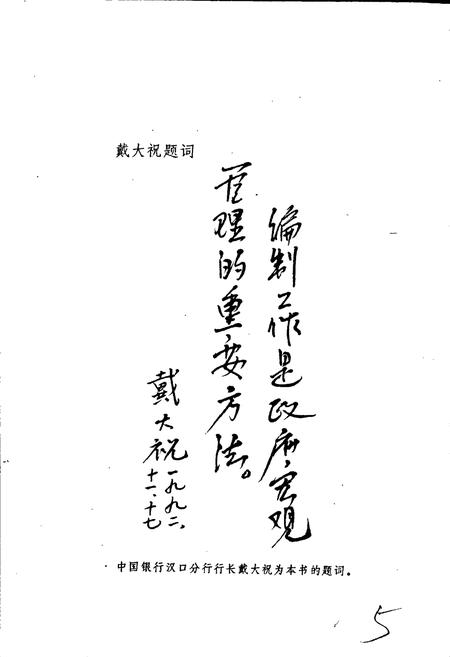 戴大祝题词
编制工作是政府宏观
管理的重要方法。
戴大祝
一九九二、
十一、十七
中国银行汉口分行行长戴大祝为本书的题词。
5